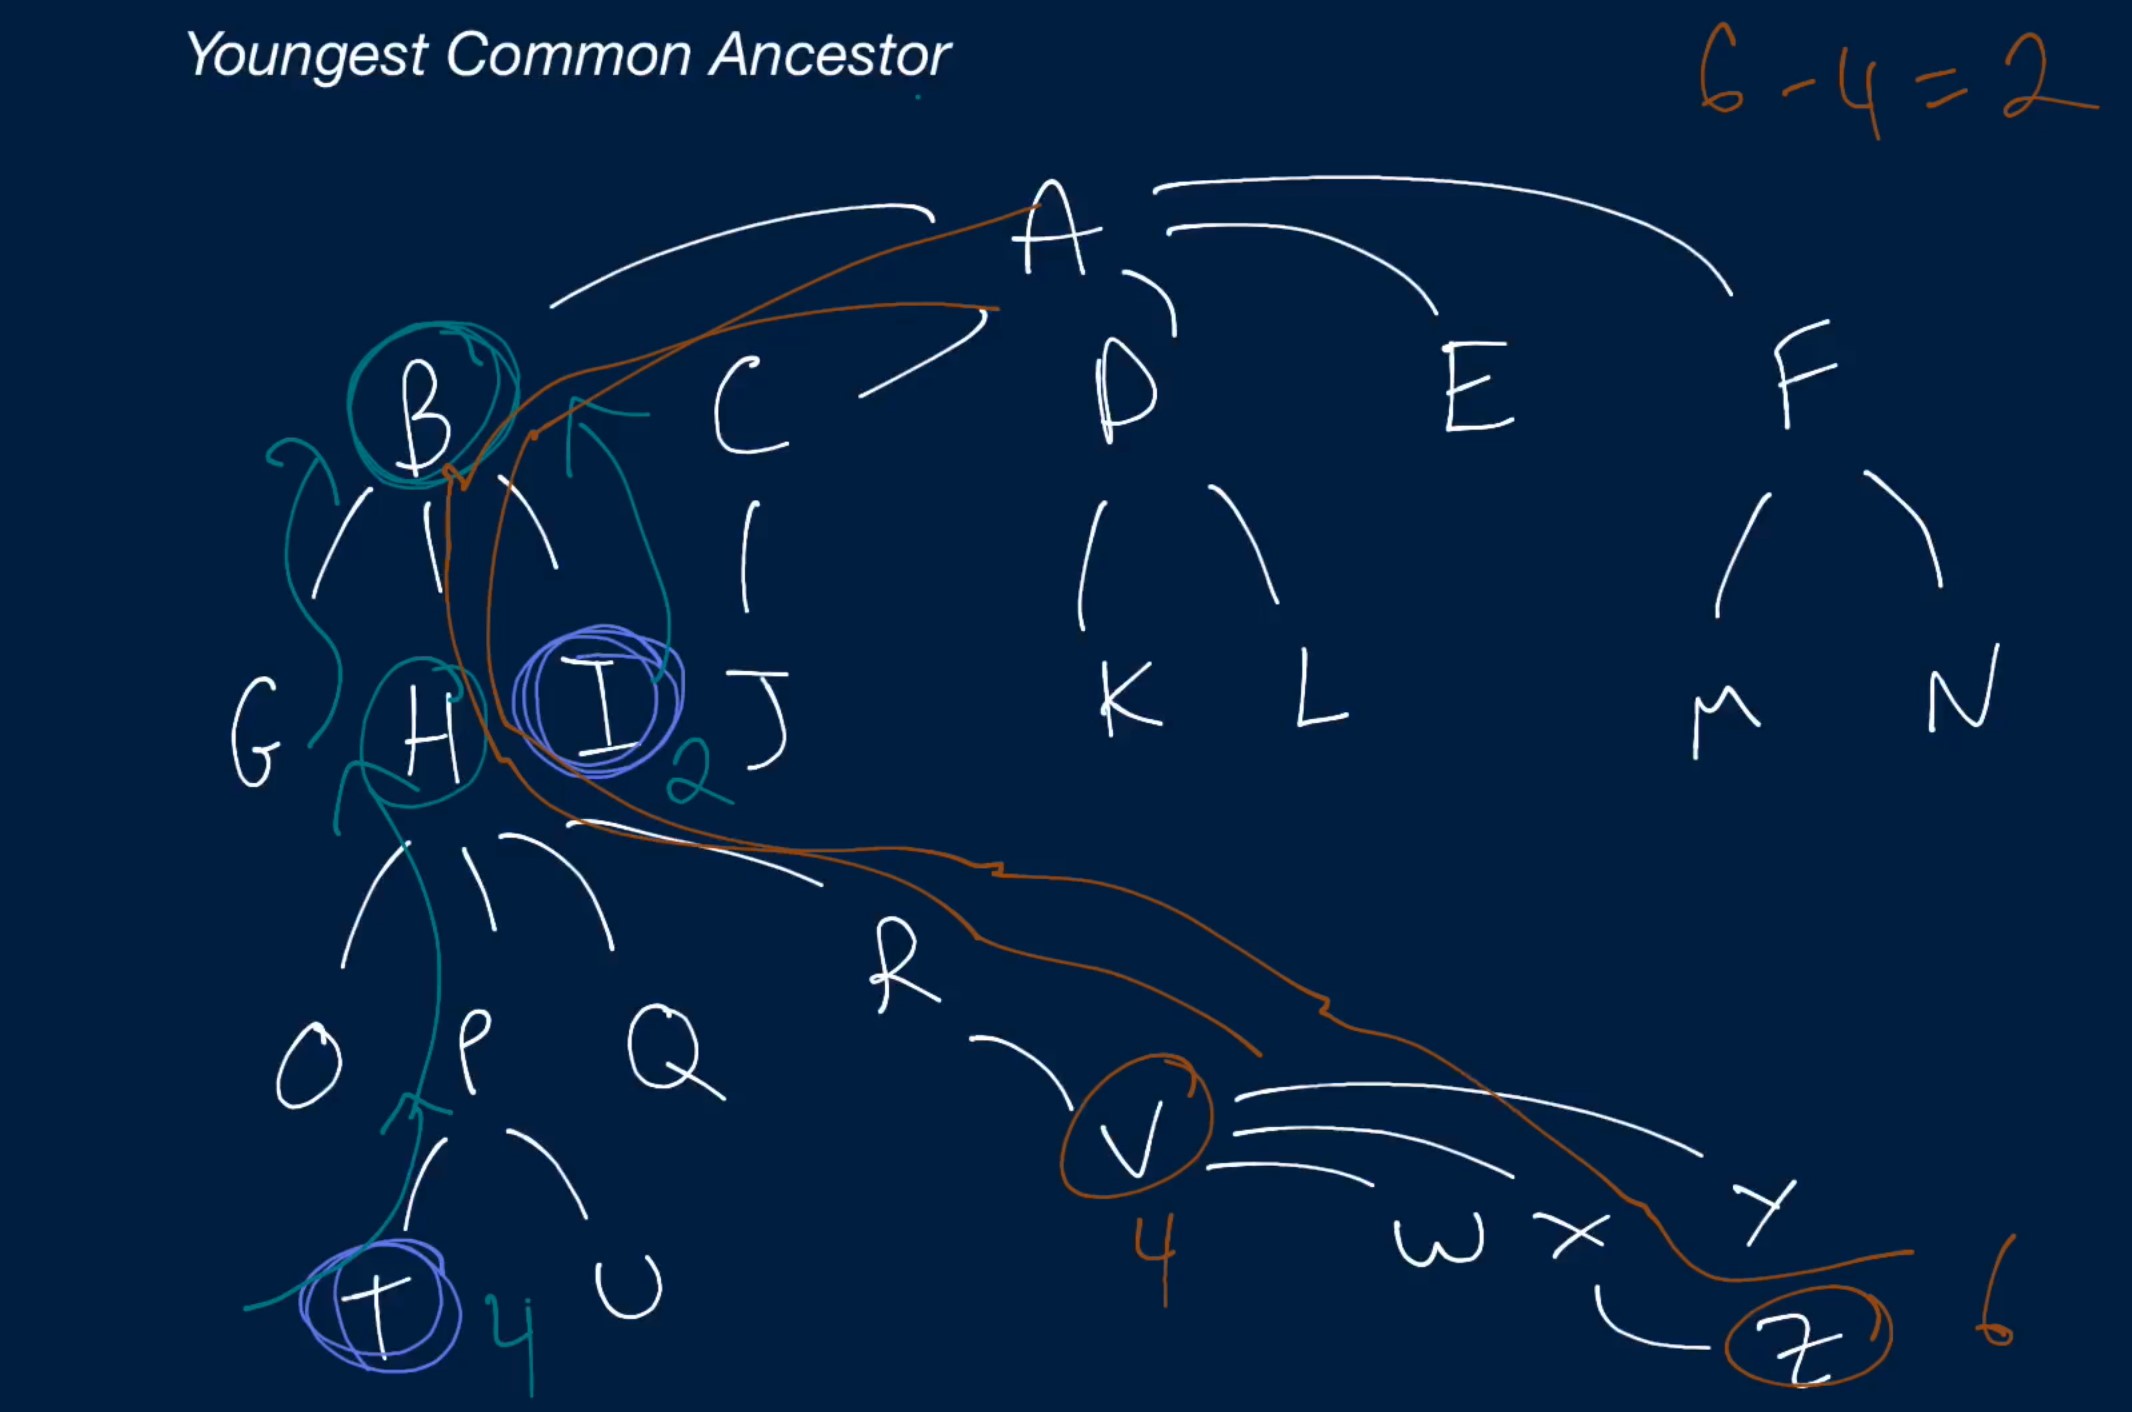 Youngest Common Ancestor
6 - 4 = 2
A
B C D E F
G H I J K L M N
2
O P Q R
V
T U W X Y
4 4 6
Z